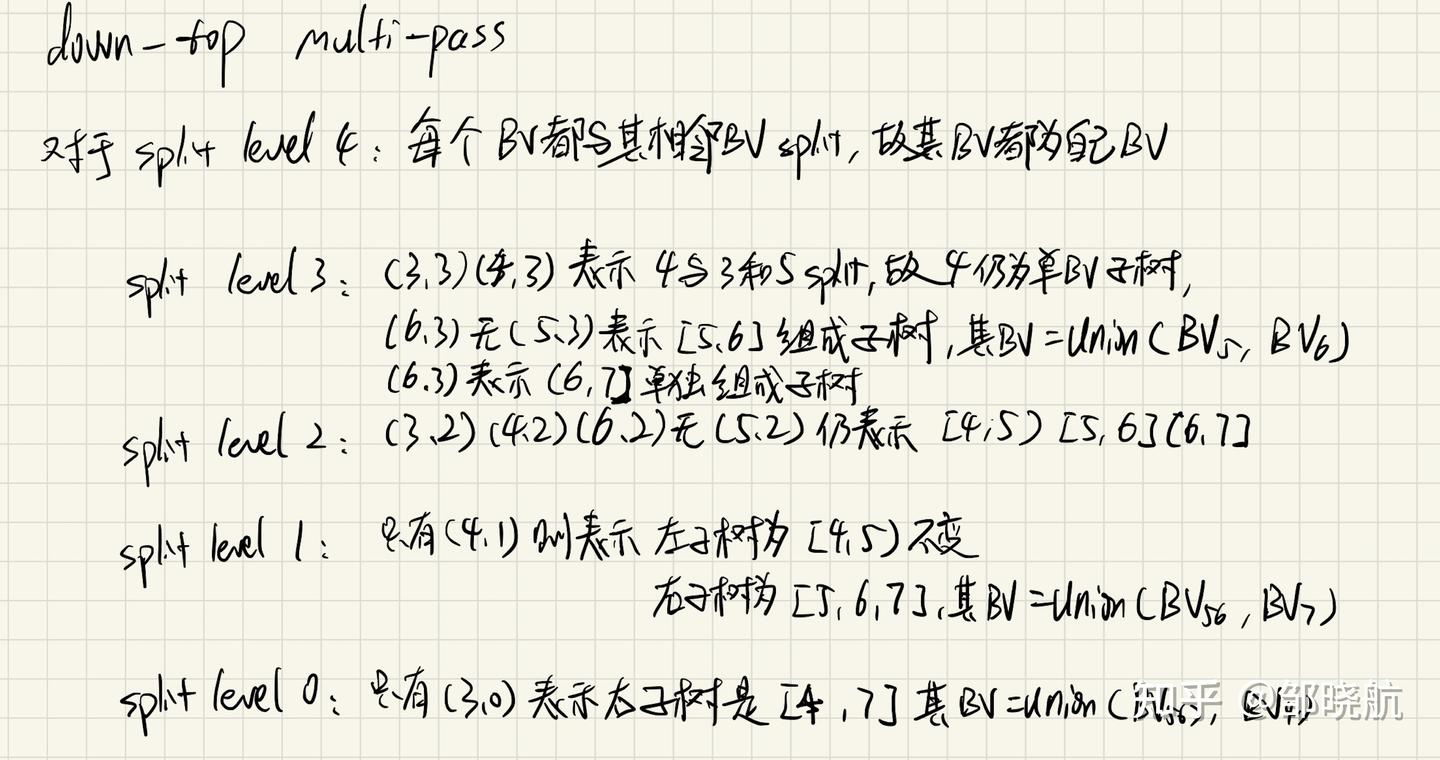 down-top multi-pass
对于 split level 4: 每个BV都与其相邻BV split, 故其BV都为自己BV
split level 3: (3,3)(4,3) 表示 4与3和5 split, 故4仍为单BV子树,
(6.3)无(5.3)表示 [5,6]组成子树, 其BV=Union(BV5, BV6)
(6.3)表示 (6,7]单独组成子树
split level 2: (3.2)(4.2)(6.2)无(5.2)仍表示 [4,5) [5,6](6,7]
split level 1: 只有(4,1)则表示 左子树为 [4,5)不变
右子树为 [5,6,7], 其BV=Union(BV56, BV7)
split level 0: 只有(3,0)表示右子树是 [4,7] 其BV=Union(
知乎 @邹晓航